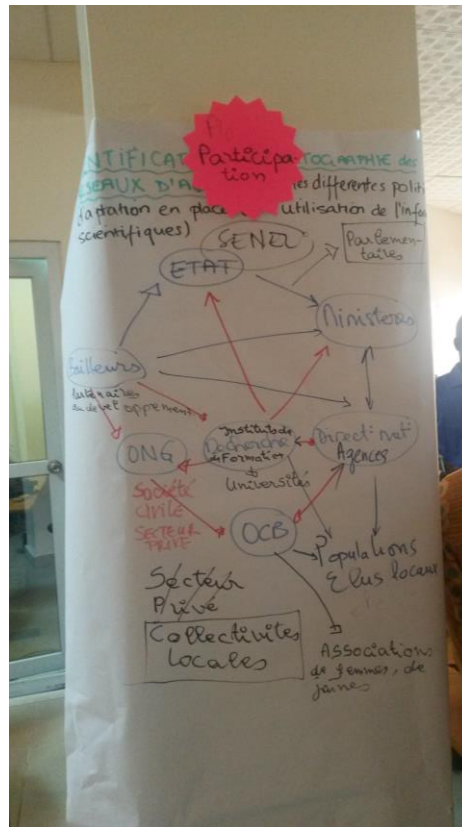 Participa-
tion
NTIFICAT TOGRAPHIE des
SEAUX D'A les differentes politi
daptation en place utilisation de l'info
scientifiques)
SENEL
ETAT
Parlemen-
taires
Ministères
Bailleurs
Partenaires
en devel oppement
ONG
Instituts de
Recherche
de Formation
+
Universités
Direct° nat
Agences
Société
Civile
SECTEUR
PRIVE
OCB
Populations
Elus locaux
Secteur
Privé
Collectivites
Locales
ASSociations
de femmes, de
jeunes